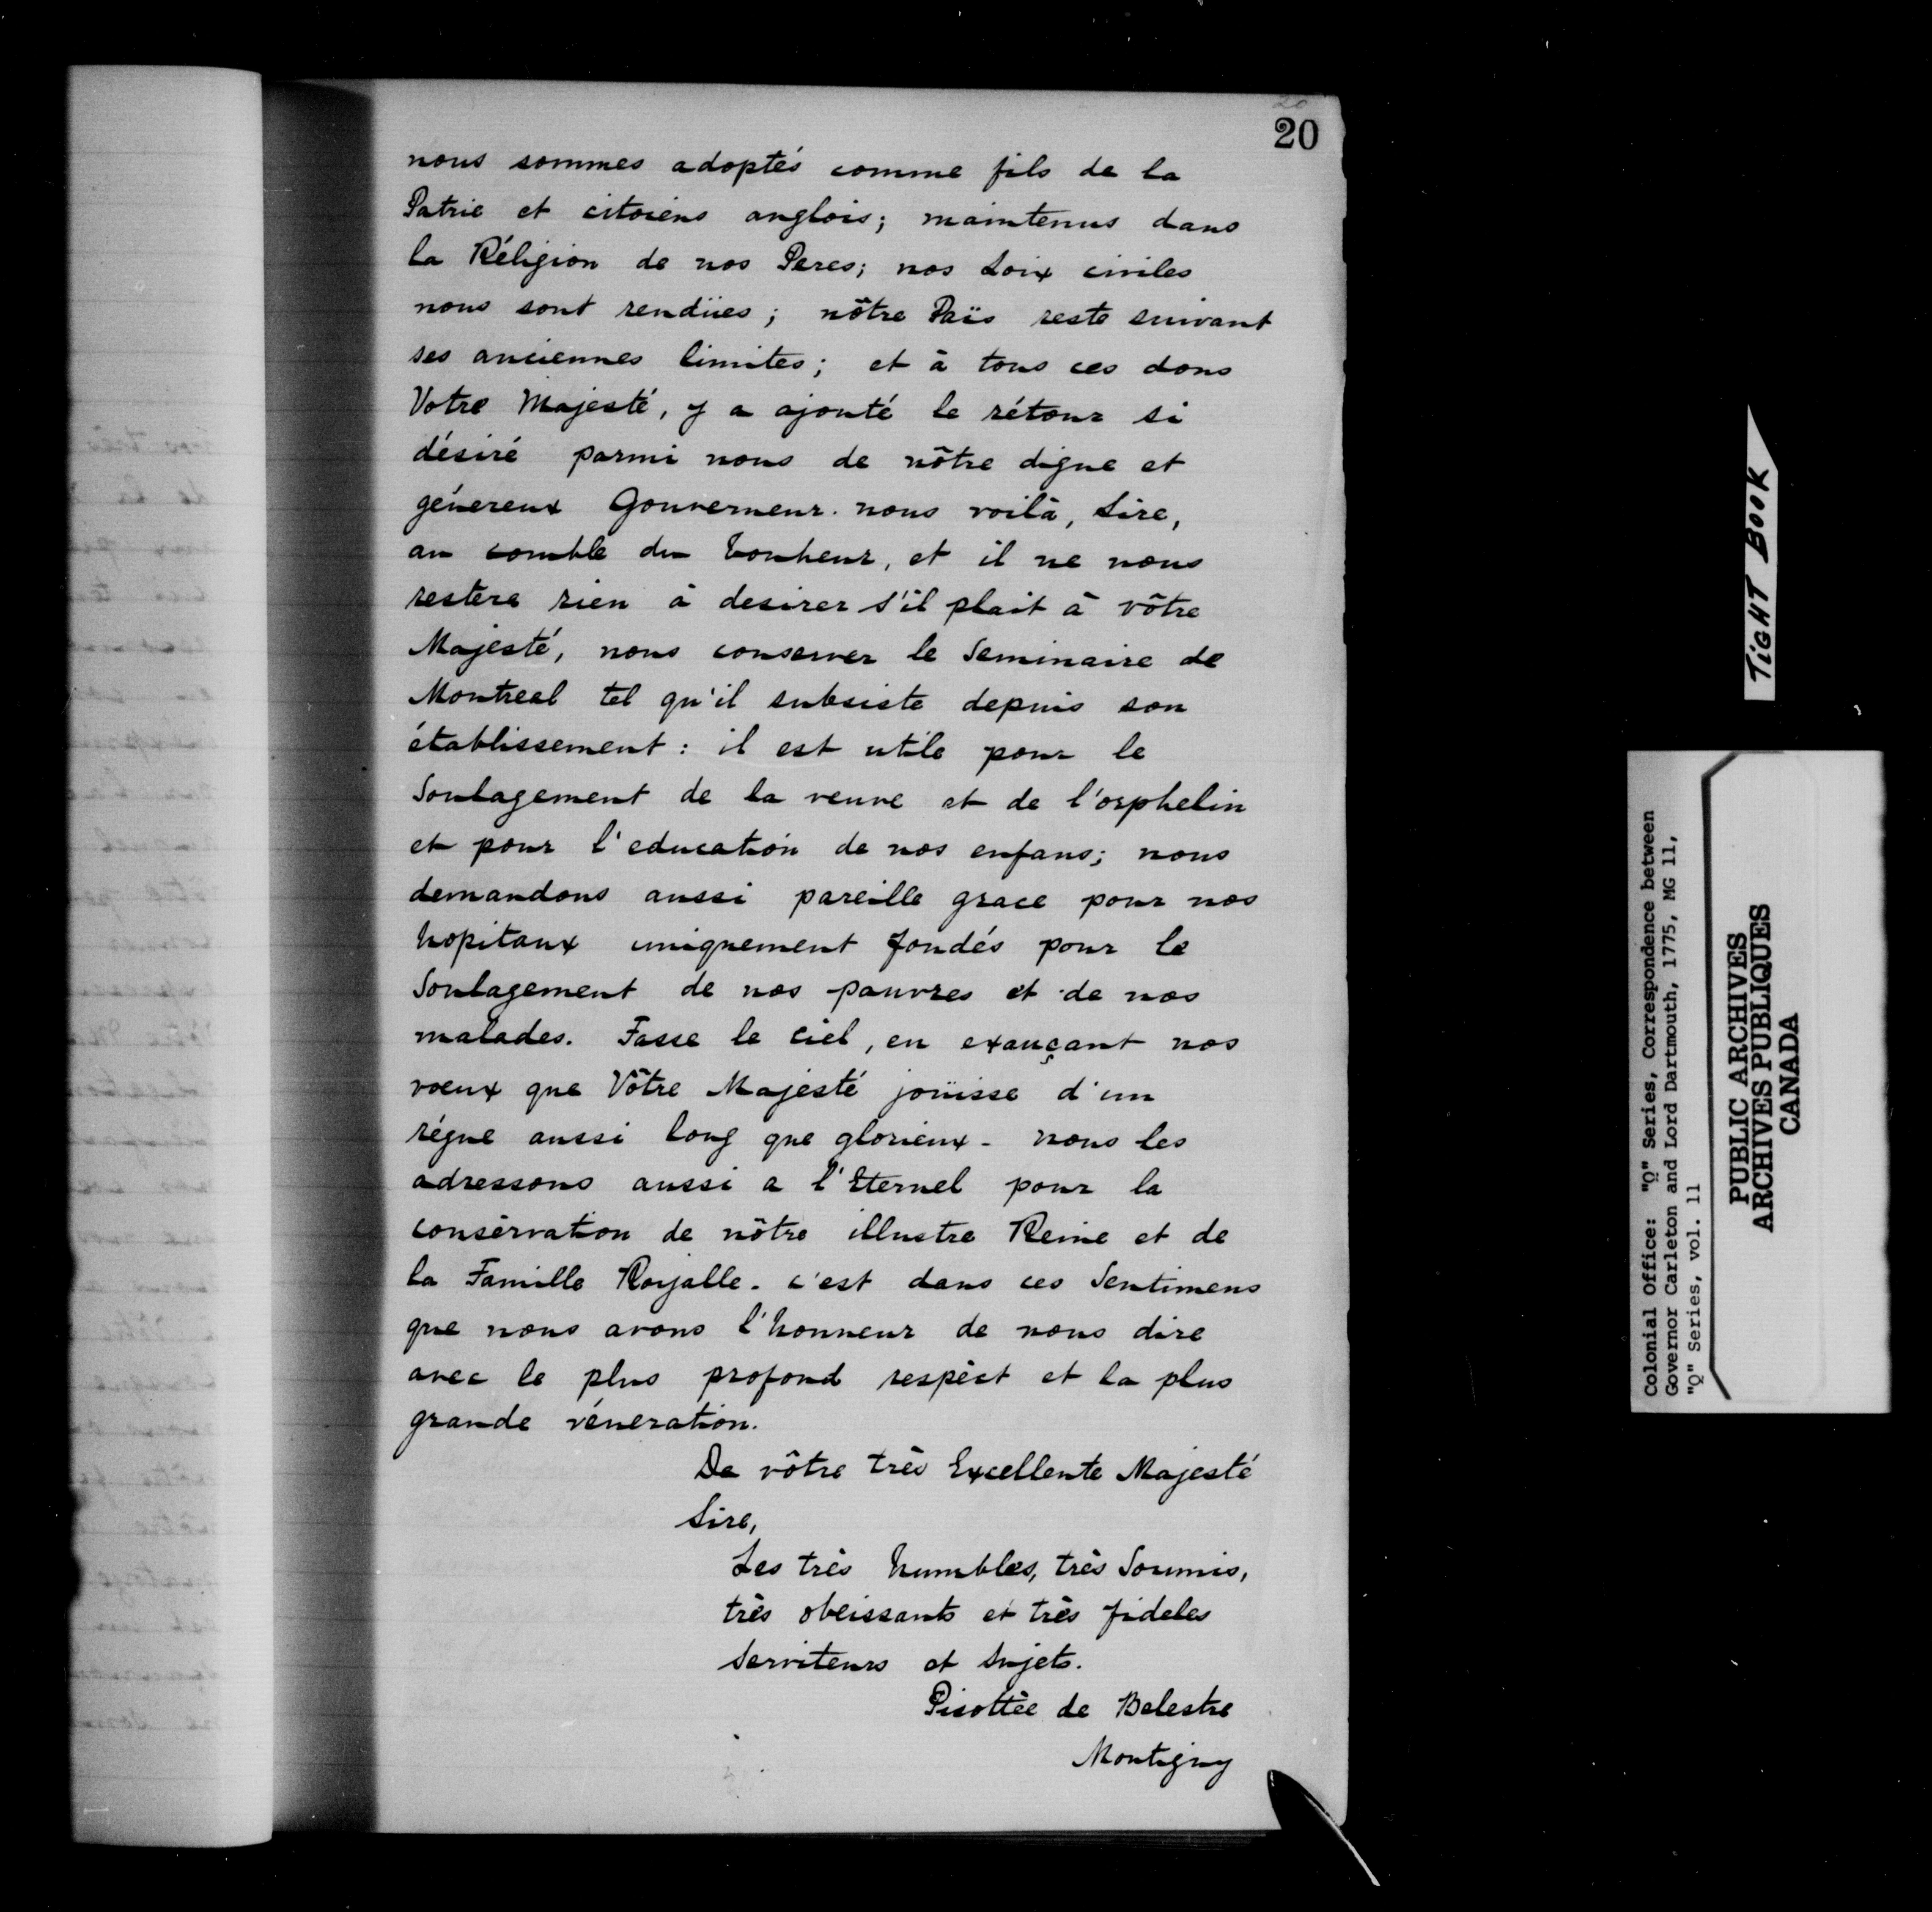 20
20
nous sommes adoptés comme fils de la
Patrie et citoiens anglois; maintenus dans
la Réligion de nos Peres; nos Loix civiles
nous sont rendües; nôtre Païs reste suivant
ses anciennes limites; et à tous ces dons
Votre Majesté, y a ajouté le rétour si
désiré parmi nous de nôtre digne et
génereux Gouverneur. nous voilà, Sire,
au comble du bonheur, et il ne nous
restera rien à desirer s'il plait à vôtre
Majesté, nous conserver le Seminaire de
Montreal tel qu'il subsiste depuis son
établissement : il est utile pour le
Soulagement de la veuve et de l'orphelin
et pour l'education de nos enfans; nous
demandons aussi pareille grace pour nos
hopitaux uniquement fondés pour le
Soulagement de nos pauvres et de nos
malades. Fasse le ciel, en exauçant nos
voeux que Vôtre Majesté joüisse d'un
régne aussi long que glorieux - nous les
adressons aussi a l'Eternel pour la
consérvation de nôtre illustre Reine et de
la Famille Royalle. c'est dans ces Sentimens
que nous avons l'honneur de nous dire
avec le plus profond respèct et la plus
grande véneration.
De vôtre très Excellente Majesté
Sire,
Les très humbles, très Soumis,
très obeissants et très fideles
Serviteurs et Sujets.
Picottée de Belestre
Montigny
TIGHT BOOK
Colonial Office: "Q" Series, Correspondence between
Governor Carleton and Lord Dartmouth, 1775, MG 11,
"Q" Series, vol. 11
PUBLIC ARCHIVES
ARCHIVES PUBLIQUES
CANADA